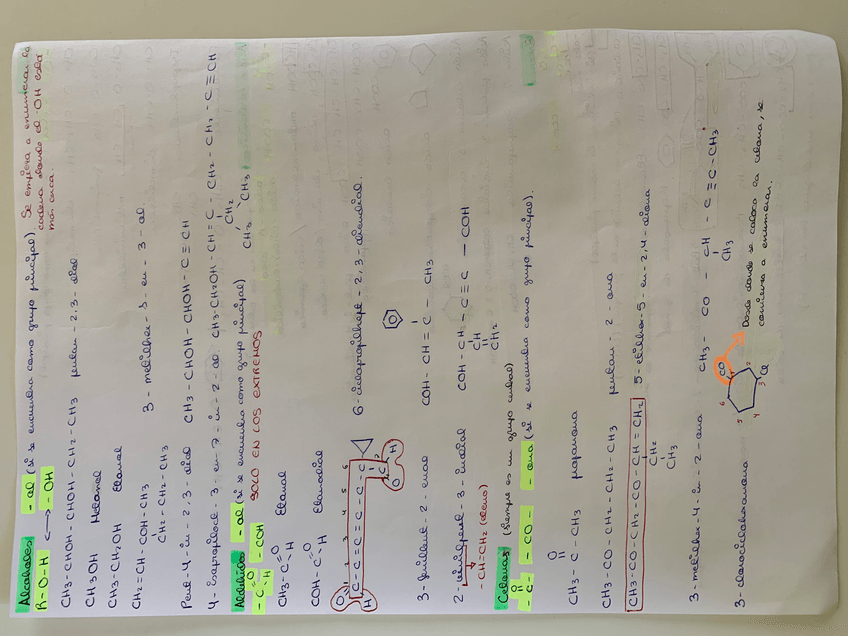 Alcoholes -ol (si se encuentra como grupo principal) Se empieza a enumerar la cadena donde el -OH esté más cerca.
R-O-H ⟷ -OH
CH3 - CHOH - CHOH - CH2 - CH3 pentan - 2,3 - diol
CH3OH Metanol
CH3 - CH2OH Etanol
CH2 = CH - COH - CH3
CH2 - CH2 - CH3
3 - metilhex - 1 - en - 3 - ol
Pent - 4 - in - 2,3 - diol CH3 - CHOH - CHOH - C ≡ CH
4 - isopropiloct - 3 - en - 7 - in - 2 - ol CH3 - CH2OH - CH = C - CH2 - CH2 - C ≡ CH
CH2
CH3 CH3
Aldehidos -al (si se encuentra como grupo principal)
-C=O H -COH SOLO EN LOS EXTREMOS
CH3 - C=O - H Etanal
COH - C=O - H Etanodial
O 1 2 3 4 5 6
C - C = C = C - C - C
H 7 C O H
6 - ciclopropilhept - 2,3 - dienodial
3 - fenilbut - 2 - enal COH - CH = C - CH3
2 - etenilpent - 3 - inodial COH - CH - C ≡ C - COH
CH
CH2
- CH = CH2 (eteno)
Cetonas (siempre es un grupo cetal)
O
-C- -CO- -ona (si se encuentra como grupo principal).
O
CH3 - C - CH3 propanona
CH3 - CO - CH2 - CH2 - CH3 pentan - 2 - ona
CH3 - CO - CH2 - CO - CH = CH2 5 - etilhex - 5 - en - 2,4 - diona
CH2
CH3
3 - metilhex - 4 - in - 2 - ona CH3 - CO - CH - C ≡ C - CH3
CH3
3 - clorociclohexanona
CO 1 2 3 4 5 6 Cl
Desde donde se coloca la cetona, se comienza a enumerar.